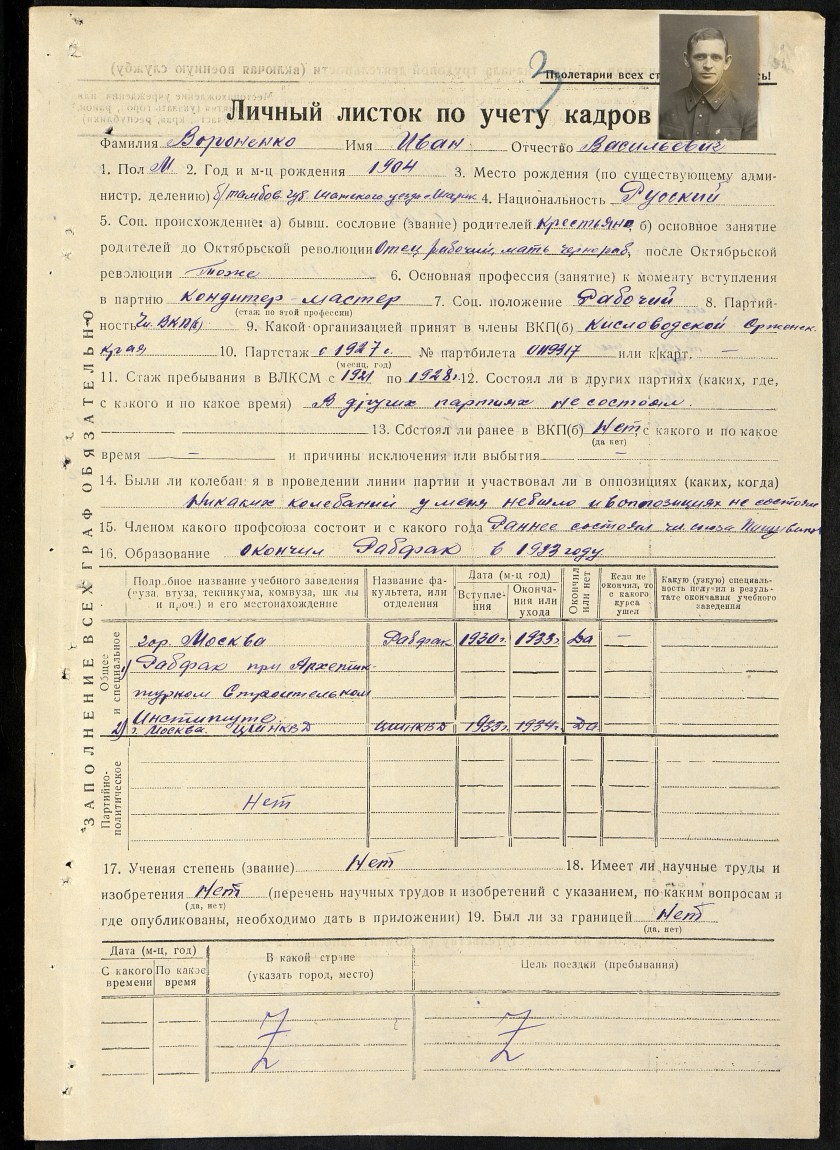 3
Пролетарии всех ст
Личный листок по учету кадров
Фамилия Вороненко Имя Иван Отчество Васильевич
1. Пол М. 2. Год и м-ц рождения 1904 3. Место рождения (по существующему адми-
нистр. делению) б/тамбов. губ. Шатского уезда 4. Национальность Русский
5. Соц. происхождение: а) бывш. сословие (звание) родителей крестьяне, б) основное занятие
родителей до Октябрьской революции Отец рабочий, мать чернораб, после Октябрьской
революции Тоже 6. Основная профессия (занятие) к моменту вступления
в партию кондитер-мастер 7. Соц. положение Рабочий 8. Партий-
(стаж по этой профессии)
ность Чл. ВКП(б) 9. Какой организацией принят в члены ВКП(б) Кисловодской
края 10. Партстаж с 1927 г. № партбилета или к|карт. —
(месяц, год)
11. Стаж пребывания в ВЛКСМ с 1921 по 1928 г. 12. Состоял ли в других партиях (каких, где,
с какого и по какое время) В других партиях не состоял.
13. Состоял ли ранее в ВКП(б) Нет, с какого и по какое
(да нет)
время — и причины исключения или выбытия —
14. Были ли колебан я в проведении линии партии и участвовал ли в оппозициях (каких, когда)
Никаких колебаний у меня небыло и в оппозициях не состоял
15. Членом какого профсоюза состоит и с какого года Раннее состоял чл. союза
16. Образование окончил Рабфак в 1933 году
ЗАПОЛНЕНИЕ ВСЕХ ГРАФ ОБЯЗАТЕЛЬНО
Подробное название учебного заведения (вуза, втуза, техникума, комвуза, шк лы и проч.) и его местонахождение
Название факультета, или отделения
Дата (м-ц, год)
Вступления
Окончания или ухода
Окончил или нет
Если не окончил, то с какого курса ушел
Какую (узкую) специальность получил в результате окончания учебного заведения
Общее и специальное
1) гор. Москва Рабфак 1930 г. 1933 г. Да —
Рабфак при Архетик-
турном Строительном
Институте.
2) г. Москва. ЦШНКВД ЦШНКВД 1933 г. 1934 г. Да
Партийно-политическое
Нет
17. Ученая степень (звание) Нет 18. Имеет ли научные труды и
изобретения Нет (перечень научных трудов и изобретений с указанием, по каким вопросам и
(да, нет)
где опубликованы, необходимо дать в приложении) 19. Был ли за границей Нет
(да, нет)
Дата (м-ц, год)
С какого времени
По какое время
В какой стране (указать город, место)
Цель поездки (пребывания)